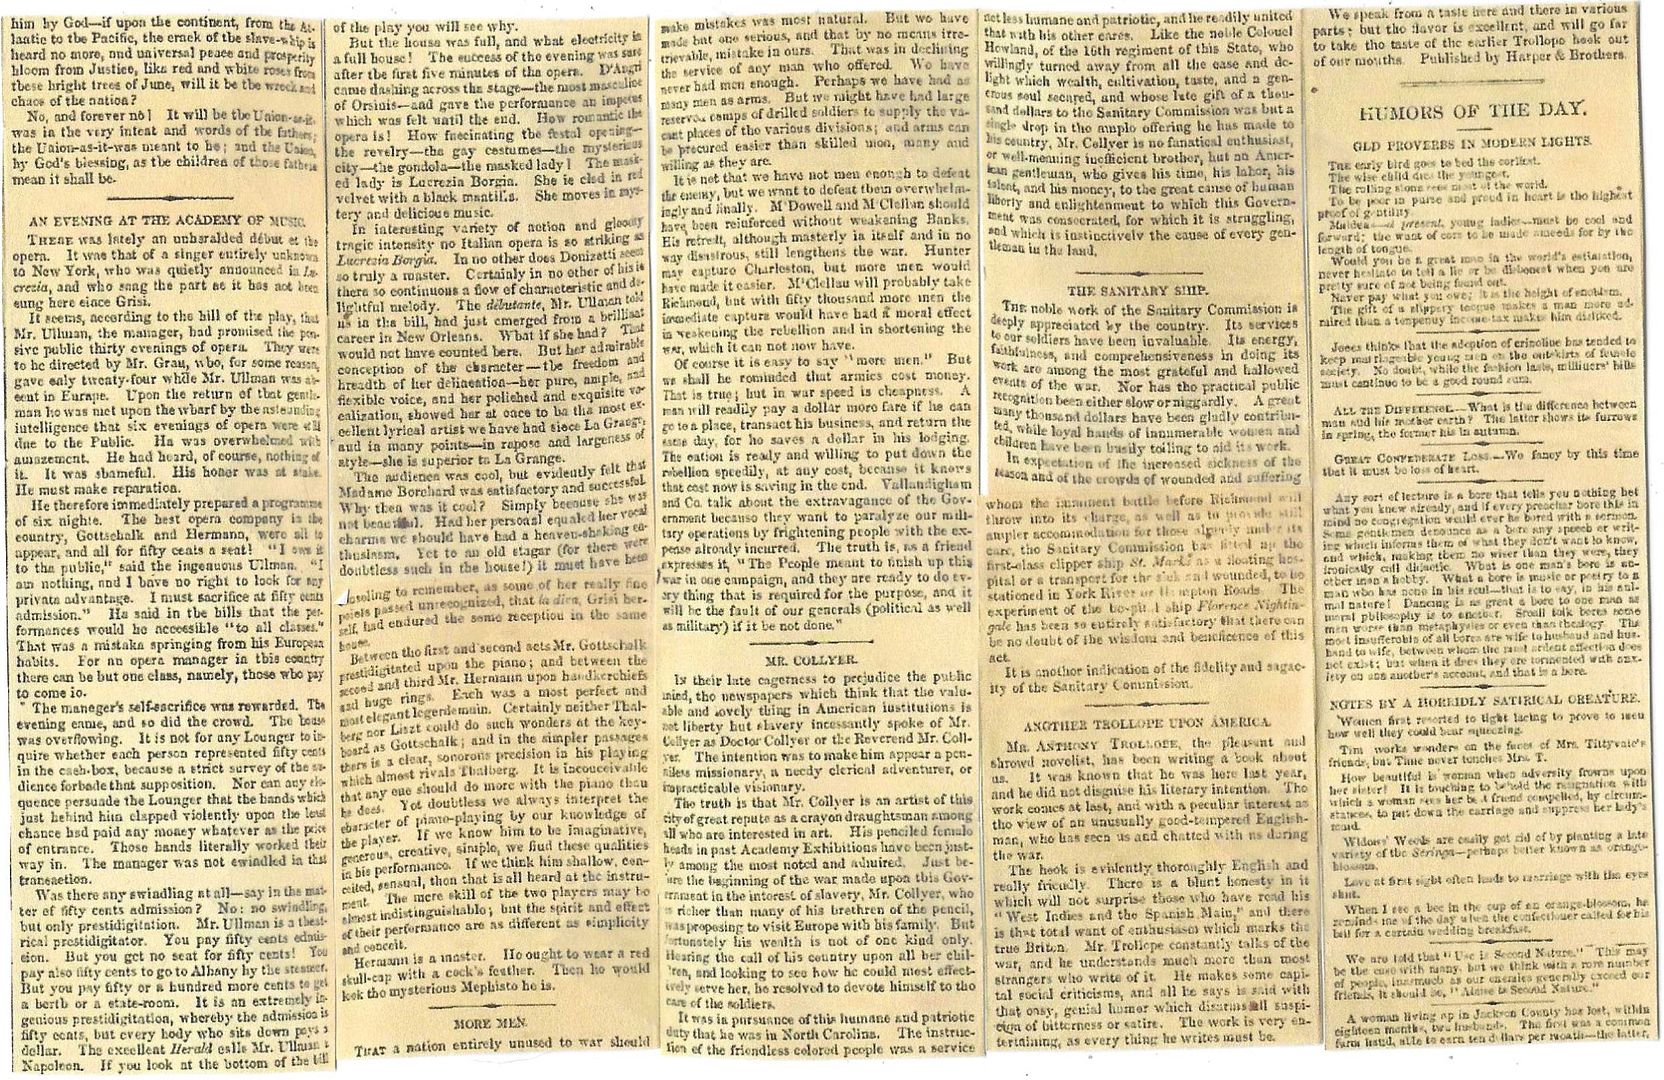 him by God—if upon the continent, from the At-
lantic to the Pacific, the crack of the slave-whip is
heard no more, and universal peace and prosperity
bloom from Justice, like red and white roses from
these bright trees of June, will it be the wreck and
chaos of the nation?
No, and forever no! It will be the Union-as-it-
was in the very intent and words of the fathers;
the Union-as-it-was meant to be; and the Union,
by God's blessing, as the children of those fathers
mean it shall be.
AN EVENING AT THE ACADEMY OF MUSIC.
THERE was lately an unheralded début at the
opera. It was that of a singer entirely unknown
to New York, who was quietly announced in Lu-
crezia, and who sang the part as it has not been
sung here since Grisi.
It seems, according to the bill of the play, that
Mr. Ullman, the manager, had promised the pen-
sive public thirty evenings of opera. They were
to be directed by Mr. Grau, who, for some reason,
gave only twenty-four while Mr. Ullman was ab-
sent in Europe. Upon the return of that gentle-
man he was met upon the wharf by the astounding
intelligence that six evenings of opera were still
due to the Public. He was overwhelmed with
amazement. He had heard, of course, nothing of
it. It was shameful. His honor was at stake.
He must make reparation.
He therefore immediately prepared a programme
of six nights. The best opera company in the
country, Gottschalk and Hermann, were all to
appear, and all for fifty cents a seat! "I owe it
to the public," said the ingenuous Ullman. "I
am nothing, and I have no right to look for any
private advantage. I must sacrifice at fifty cents
admission." He said in the bills that the per-
formances would be accessible "to all classes."
That was a mistake springing from his European
habits. For an opera manager in this country
there can be but one class, namely, those who pay
to come in.
The manager's self-sacrifice was rewarded. The
evening came, and so did the crowd. The house
was overflowing. It is not for any Lounger to in-
quire whether each person represented fifty cents
in the cash-box, because a strict survey of the au-
dience forbade that supposition. Nor can any elo-
quence persuade the Lounger that the hands which
just behind him clapped violently upon the least
chance had paid any money whatever as the price
of entrance. Those hands literally worked their
way in. The manager was not swindled in that
transaction.
Was there any swindling at all—say in the mat-
ter of fifty cents admission? No: no swindling,
but only prestidigitation. Mr. Ullman is a theat-
rical prestidigitator. You pay fifty cents admis-
sion. But you get no seat for fifty cents! You
pay also fifty cents to go to Albany by the steamer.
But you pay fifty or a hundred more cents to get
a berth or a state-room. It is an extremely in-
genious prestidigitation, whereby the admission is
fifty cents, but every body who sits down pays a
dollar. The excellent Herald calls Mr. Ullman a
Napoleon. If you look at the bottom of the bill
of the play you will see why.
But the house was full, and what electricity in
a full house! The success of the evening was sure
after the first five minutes of the opera. D'Angri
came dashing across the stage—the most masculine
of Orsinis—and gave the performance an impetus
which was felt until the end. How romantic the
opera is! How fascinating the festal opening—
the revelry—the gay costumes—the mysterious
city—the gondola—the masked lady! The mask-
ed lady is Lucrezia Borgia. She is clad in red
velvet with a black mantilla. She moves in mys-
tery and delicious music.
In interesting variety of action and gloomy
tragic intensity no Italian opera is so striking as
Lucrezia Borgia. In no other does Donizetti seem
so truly a master. Certainly in no other of his is
there so continuous a flow of characteristic and de-
lightful melody. The débutante, Mr. Ullman told
us in the bill, had just emerged from a brilliant
career in New Orleans. What if she had? That
would not have counted here. But her admirable
conception of the character—the freedom and
breadth of her delineation—her pure, ample, and
flexible voice, and her polished and exquisite vo-
calization, showed her at once to be the most ex-
cellent lyrical artist we have had since La Grange;
and in many points—in repose and largeness of
style—she is superior to La Grange.
The audience was cool, but evidently felt that
Madame Borchard was satisfactory and successful.
Why then was it cool? Simply because she was
not beautiful. Had her personal equaled her vocal
charms we should have had a heaven-shaking en-
thusiasm. Yet to an old stager (for there were
doubtless such in the house!) it must have been
consoling to remember, as some of her really fine
points passed unrecognized, that la diva, Grisi her-
self, had endured the same reception in the same
house.
Between the first and second acts Mr. Gottschalk
prestidigitated upon the piano; and between the
second and third Mr. Hermann upon handkerchiefs
and huge rings. Each was a most perfect and
most elegant legerdemain. Certainly neither Thal-
berg nor Liszt could do such wonders at the key-
board as Gottschalk; and in the simpler passages
there is a clear, sonorous precision in his playing
which almost rivals Thalberg. It is inconceivable
that any one should do more with the piano than
he does. Yet doubtless we always interpret the
character of piano-playing by our knowledge of
the player. If we know him to be imaginative,
generous, creative, simple, we find these qualities
in his performance. If we think him shallow, con-
ceited, sensual, then that is all heard at the instru-
ment. The mere skill of the two players may be
almost indistinguishable; but the spirit and effect
of their performance are as different as simplicity
and conceit.
Hermann is a master. He ought to wear a red
skull-cap with a cock's feather. Then he would
look the mysterious Mephisto he is.
MORE MEN.
THAT a nation entirely unused to war should
make mistakes was most natural. But we have
made but one serious, and that by no means irre-
trievable, mistake in ours. That was in declining
the service of any man who offered. We have
never had men enough. Perhaps we have had as
many men as arms. But we might have had large
reserve camps of drilled soldiers to supply the va-
cant places of the various divisions; and arms can
be procured easier than skilled men, many and
willing as they are.
It is not that we have not men enough to defeat
the enemy, but we want to defeat them overwhelm-
ingly and finally. M'Dowell and M'Clellan should
have been reinforced without weakening Banks.
His retreat, although masterly in itself and in no
way disastrous, still lengthens the war. Hunter
may capture Charleston, but more men would
have made it easier. M'Clellan will probably take
Richmond, but with fifty thousand more men the
immediate capture would have had a moral effect
in weakening the rebellion and in shortening the
war, which it can not now have.
Of course it is easy to say "more men." But
we shall be reminded that armies cost money.
That is true; but in war speed is cheapness. A
man will readily pay a dollar more fare if he can
go to a place, transact his business, and return the
same day, for he saves a dollar in his lodging.
The nation is ready and willing to put down the
rebellion speedily, at any cost, because it knows
that cost now is saving in the end. Vallandigham
and Co. talk about the extravagance of the Gov-
ernment because they want to paralyze our mili-
tary operations by frightening people with the ex-
pense already incurred. The truth is, as a friend
expresses it, "The People meant to finish up this
war in one campaign, and they are ready to do ev-
ery thing that is required for the purpose, and it
will be the fault of our generals (political as well
as military) if it be not done."
MR. COLLYER.
IN their late eagerness to prejudice the public
mind, the newspapers which think that the valu-
able and lovely thing in American institutions is
not liberty but slavery incessantly spoke of Mr.
Collyer as Doctor Collyer or the Reverend Mr. Coll-
yer. The intention was to make him appear a pen-
niless missionary, a needy clerical adventurer, or
impracticable visionary.
The truth is that Mr. Collyer is an artist of this
city of great repute as a crayon draughtsman among
all who are interested in art. His penciled female
heads in past Academy Exhibitions have been just-
ly among the most noted and admired. Just be-
fore the beginning of the war made upon this Gov-
ernment in the interest of slavery, Mr. Collyer, who
is richer than many of his brethren of the pencil,
was proposing to visit Europe with his family. But
fortunately his wealth is not of one kind only.
Hearing the call of his country upon all her chil-
dren, and looking to see how he could most effect-
ively serve her, he resolved to devote himself to the
care of the soldiers.
It was in pursuance of this humane and patriotic
duty that he was in North Carolina. The instruc-
tion of the friendless colored people was a service
not less humane and patriotic, and he readily united
that with his other cares. Like the noble Colonel
Howland, of the 16th regiment of this State, who
willingly turned away from all the ease and de-
light which wealth, cultivation, taste, and a gen-
erous soul secured, and whose late gift of a thou-
sand dollars to the Sanitary Commission was but a
single drop in the ample offering he has made to
his country, Mr. Collyer is no fanatical enthusiast,
or well-meaning inefficient brother, but an Amer-
ican gentleman, who gives his time, his labor, his
talent, and his money, to the great cause of human
liberty and enlightenment to which this Govern-
ment was consecrated, for which it is struggling,
and which is instinctively the cause of every gen-
tleman in the land.
THE SANITARY SHIP.
THE noble work of the Sanitary Commission is
deeply appreciated by the country. Its services
to our soldiers have been invaluable. Its energy,
faithfulness, and comprehensiveness in doing its
work are among the most grateful and hallowed
events of the war. Nor has the practical public
recognition been either slow or niggardly. A great
many thousand dollars have been gladly contribu-
ted, while loyal hands of innumerable women and
children have been busily toiling to aid its work.
In expectation of the increased sickness of the
season and of the crowds of wounded and suffering
whom the imminent battle before Richmond will
throw into its charge, as well as to provide still
ampler accommodation for those already under its
care, the Sanitary Commission has fitted up the
first-class clipper ship St. Marks as a floating hos-
pital or a transport for the sick and wounded, to be
stationed in York River or Hampton Roads. The
experiment of the hospital ship Florence Nightin-
gale has been so entirely satisfactory that there can
be no doubt of the wisdom and beneficence of this
act.
It is another indication of the fidelity and sagac-
ity of the Sanitary Commission.
ANOTHER TROLLOPE UPON AMERICA.
MR. ANTHONY TROLLOPE, the pleasant and
shrewd novelist, has been writing a book about
us. It was known that he was here last year,
and he did not disguise his literary intention. The
work comes at last, and with a peculiar interest as
the view of an unusually good-tempered English-
man, who has seen us and chatted with us during
the war.
The book is evidently thoroughly English and
really friendly. There is a blunt honesty in it
which will not surprise those who have read his
"West Indies and the Spanish Main," and there
is that total want of enthusiasm which marks the
true Briton. Mr. Trollope constantly talks of the
war, and he understands much more than most
strangers who write of it. He makes some capi-
tal social criticisms, and all he says is said with
that easy, genial humor which disarms all suspi-
cion of bitterness or satire. The work is very en-
tertaining, as every thing he writes must be.
We speak from a taste here and there in various
parts; but the flavor is excellent, and will go far
to take the taste of the earlier Trollope book out
of our mouths. Published by Harper & Brothers.
HUMORS OF THE DAY.
OLD PROVERBS IN MODERN LIGHTS.
The early bird goes to bed the earliest.
The wise child dies the youngest.
The rolling stone sees most of the world.
To be poor in purse and proud in heart is the highest
proof of gentility.
Maidens—at present, young ladies—must be cool and
forward; the want of ears to be made amends for by the
length of tongue.
Would you be a great man in the world's estimation,
never hesitate to tell a lie or be dishonest when you are
pretty sure of not being found out.
Never pay what you owe; it is the height of snobism.
The gift of a slippery tongue makes a man more ad-
mired than a tenpenny income-tax makes him disliked.
Jones thinks that the adoption of crinoline has tended to
keep marriageable young men on the outskirts of female
society. No doubt, while the fashion lasts, milliners' bills
must continue to be a good round sum.
ALL THE DIFFERENCE.—What is the difference between
man and his mother earth? The latter shows its furrows
in spring, the former his in autumn.
GREAT CONFEDERATE LOSS.—We fancy by this time
that it must be loss of heart.
Any sort of lecture is a bore that tells you nothing but
what you knew already, and if every preacher bore this in
mind no congregation would ever be bored with a sermon.
Some gentlemen denounce as a bore any speech or writ-
ing which informs them of what they don't want to know,
and which, making them no wiser than they were, they
ironically call didactic. What is one man's bore is an-
other man's hobby. What a bore is music or poetry to a
man who has none in his soul—that is to say, in his ani-
mal nature! Dancing is as great a bore to one man as
moral philosophy is to another. Small talk bores some
men worse than metaphysics or even than theology. The
most insufferable of all bores are wife to husband and hus-
band to wife, between whom the most ardent affection does
not exist; but when it does they are tormented with anx-
iety on one another's account, and that is a bore.
NOTES BY A HORRIDLY SATIRICAL CREATURE.
Women first resorted to tight lacing to prove to men
how well they could bear squeezing.
Time works wonders on the faces of Mrs. Tittyvate's
friends, but Time never touches Mrs. T.
How beautiful is woman when adversity frowns upon
her sister! It is touching to behold the resignation with
which a woman sees her best friend compelled, by circum-
stances, to put down the carriage and suppress her lady's
maid.
Widows' Weeds are easily got rid of by planting a late
variety of the Seringa—perhaps better known as orange-
blossom.
Love at first sight often leads to marriage with the eyes
shut.
When I see a bee in the cup of an orange-blossom, he
reminds me of the day when the confectioner called for his
bill for a certain wedding breakfast.
We are told that "Use is Second Nature." This may
be the case with many, but we think with a rare number
of people, inasmuch as our enemies generally exceed our
friends, it should be, "Abuse is Second Nature."
A woman living up in Jackson County has lost, within
eighteen months, two husbands. The first was a common
farm hand, able to earn ten dollars per month—the latter,